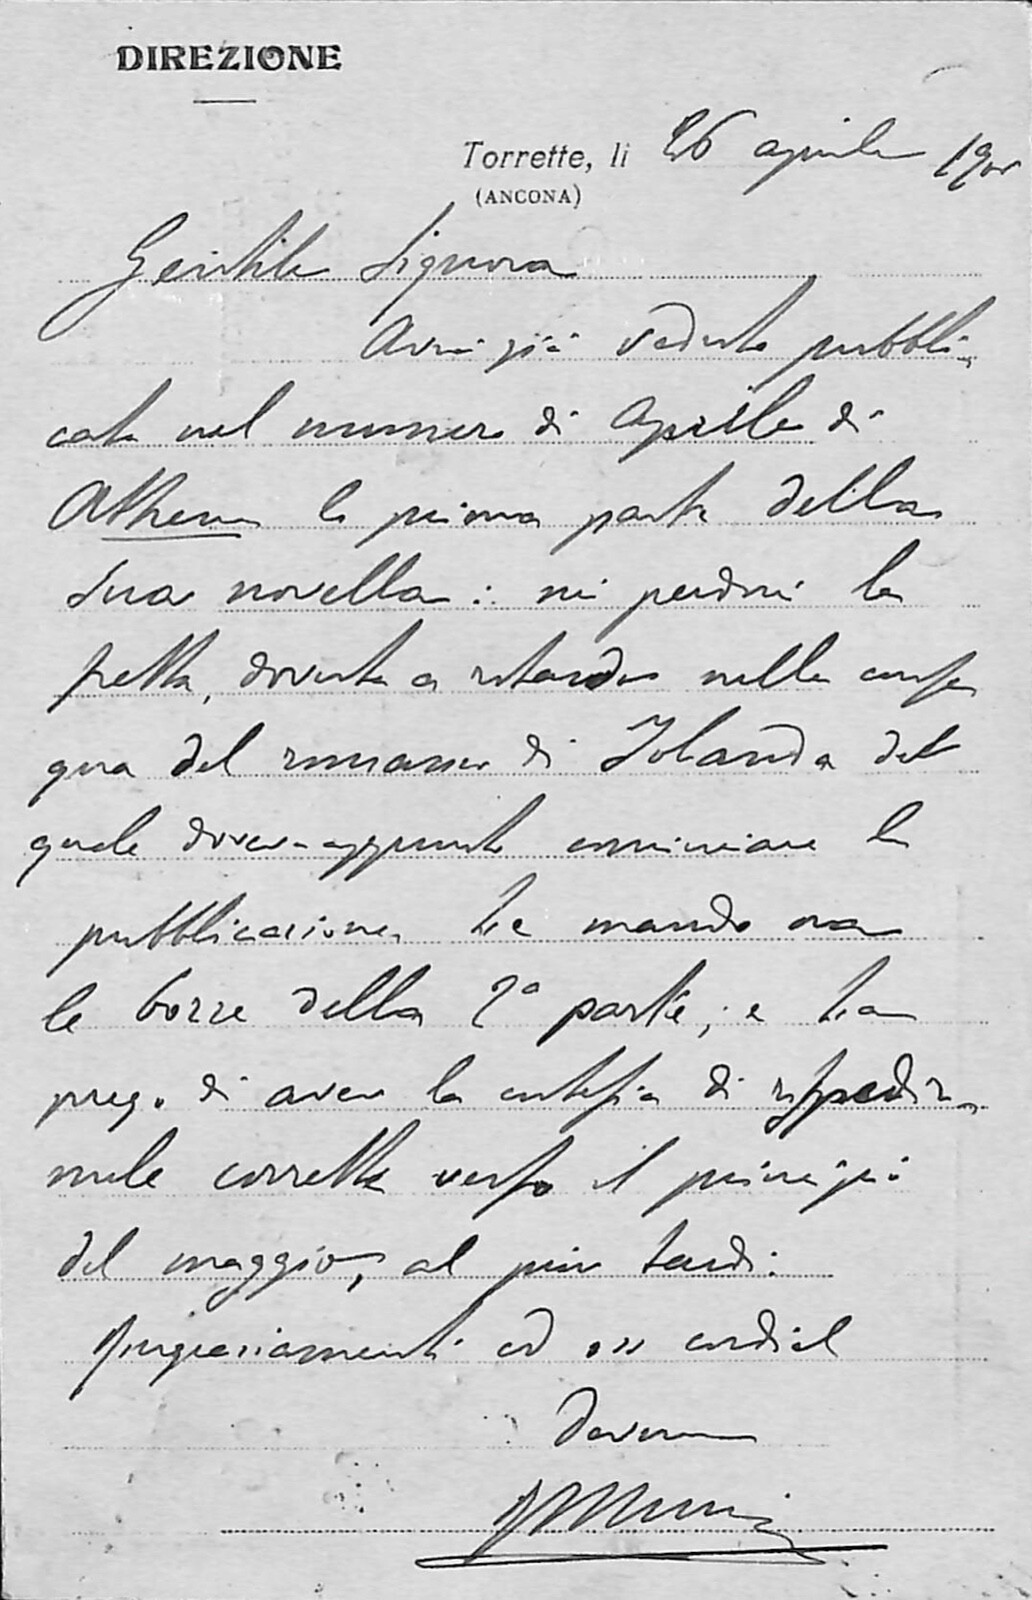 DIREZIONE
Torrette, li 26 aprile
(ANCONA)
Gentile Signora
Avrà già veduto pubbli-
cata nel numero di Aprile di
Athena la prima parte della
sua novella: mi perdoni la
fretta, dovuta a ritardo nella conse
gna del romanzo di Jolanda del
quale dovevo appunto cominciare la
pubblicazione. Le mando ora
le bozze della 2ª parte; e La
prego di aver la cortesia di rispedir-
mele corrette verso il principio
del maggio, al più tardi.
Ringraziamenti ed oss cordiali
Devmo